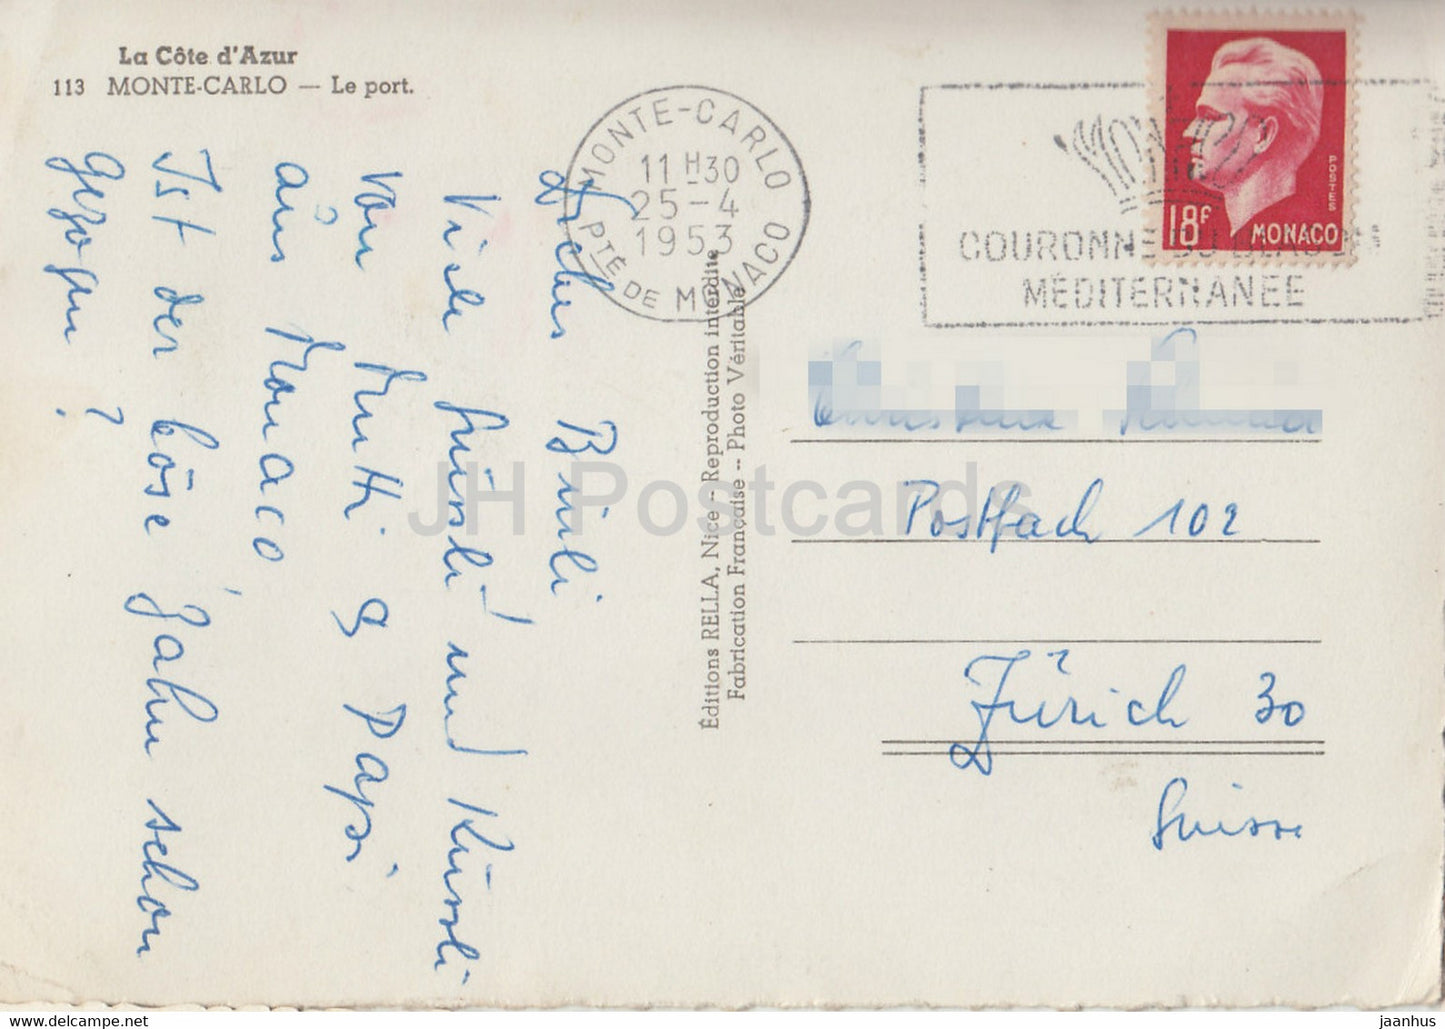 La Côte d'Azur
113 MONTE-CARLO — Le port.
MONTE-CARLO
11H30
25-4
1953
PTÉ DE MONACO
MONACO
COURONNE DU
MÉDITERRANÉE
POSTES
18F MONACO
Liebes Bünli
Viele Grüssli und Küssli
von Mutti & Papi
aus Monaco.
Ist der böse Zahn schon
gezogen?
Éditions RELLA, Nice -- Reproduction interdite
Fabrication Française -- Photo Véritable
Postfach 102
Zürich 30
Suisse
JH Postcards
jaanhus